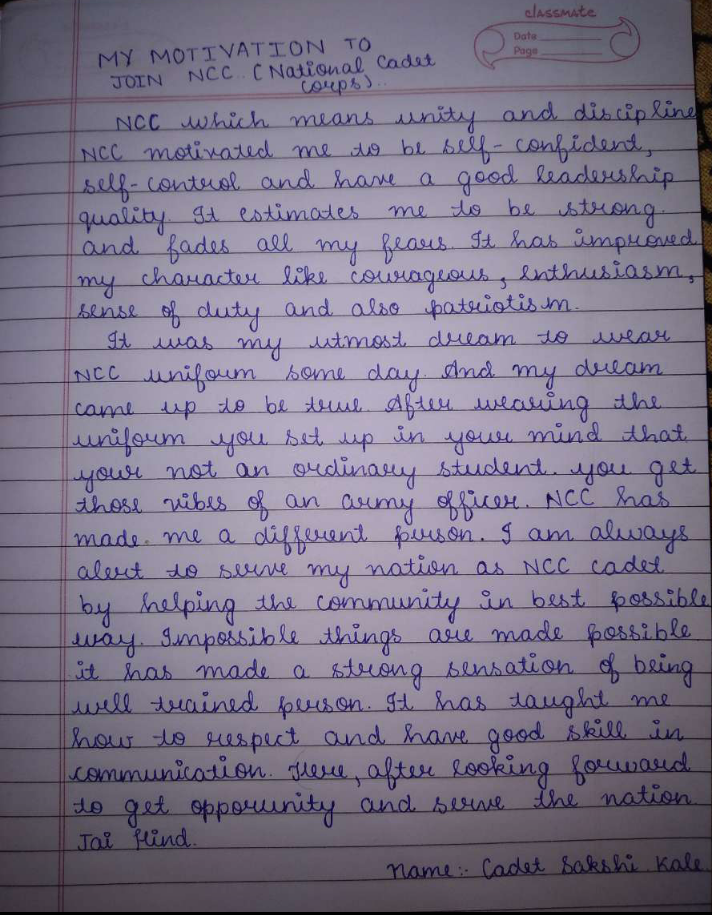 classmate
Date
Page
MY MOTIVATION TO
JOIN NCC. (National Cadet
Corps)..
NCC which means unity and discipline
NCC motivated me to be self-confident,
self-control and have a good leadership
quality. It estimates me to be strong.
and fades all my fears. It has improved
my character like courageous, enthusiasm,
sense of duty and also patriotism.
It was my utmost dream to wear
NCC uniform some day. And my dream
came up to be true. After wearing the
uniform you set up in your mind that
your not an ordinary student. you get
those vibes of an army officer. NCC has
made. me a different person. I am always
alert to serve my nation as NCC cadet
by helping the community in best possible
way. Impossible things are made possible
it has made a strong sensation of being
well trained person. It has taught me
how to respect and have good skill in
communication. Here, after looking forward
to get opporunity and serve the nation
Jai Hind.
Name:- Cadet Sakshi Kale